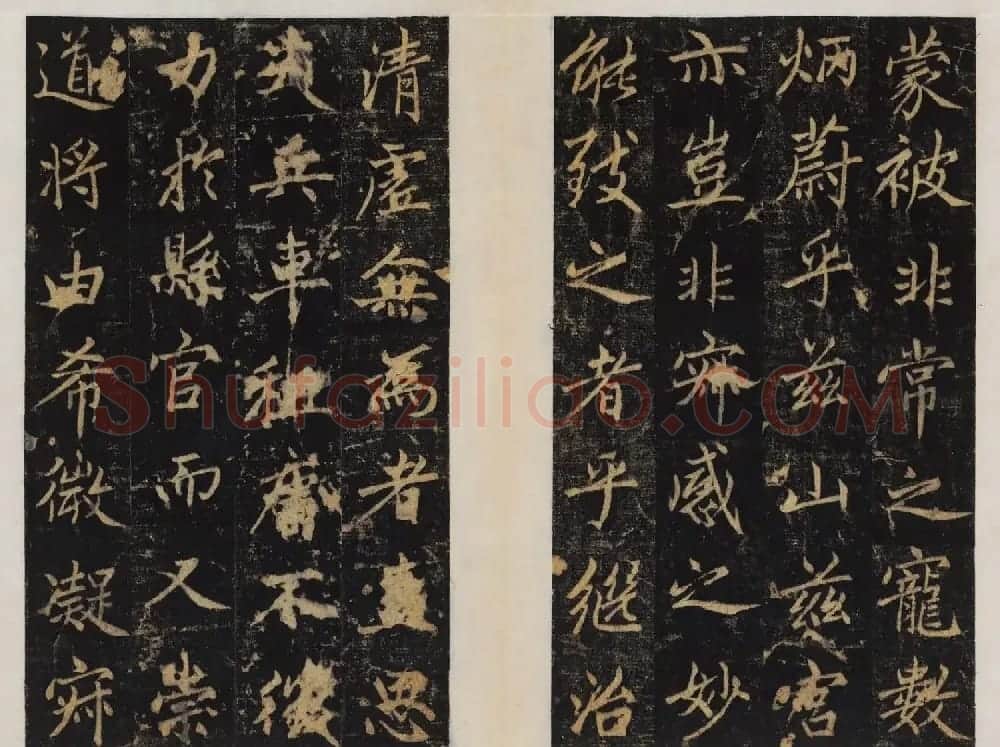 蒙被非常之寵數
炳蔚乎茲山茲宮
亦豈非寂感之妙
能致之者乎繼治
清虛無為者思
兵車租不
力於縣官而又崇
道將由希微凝寂
Shufaziliao.COM